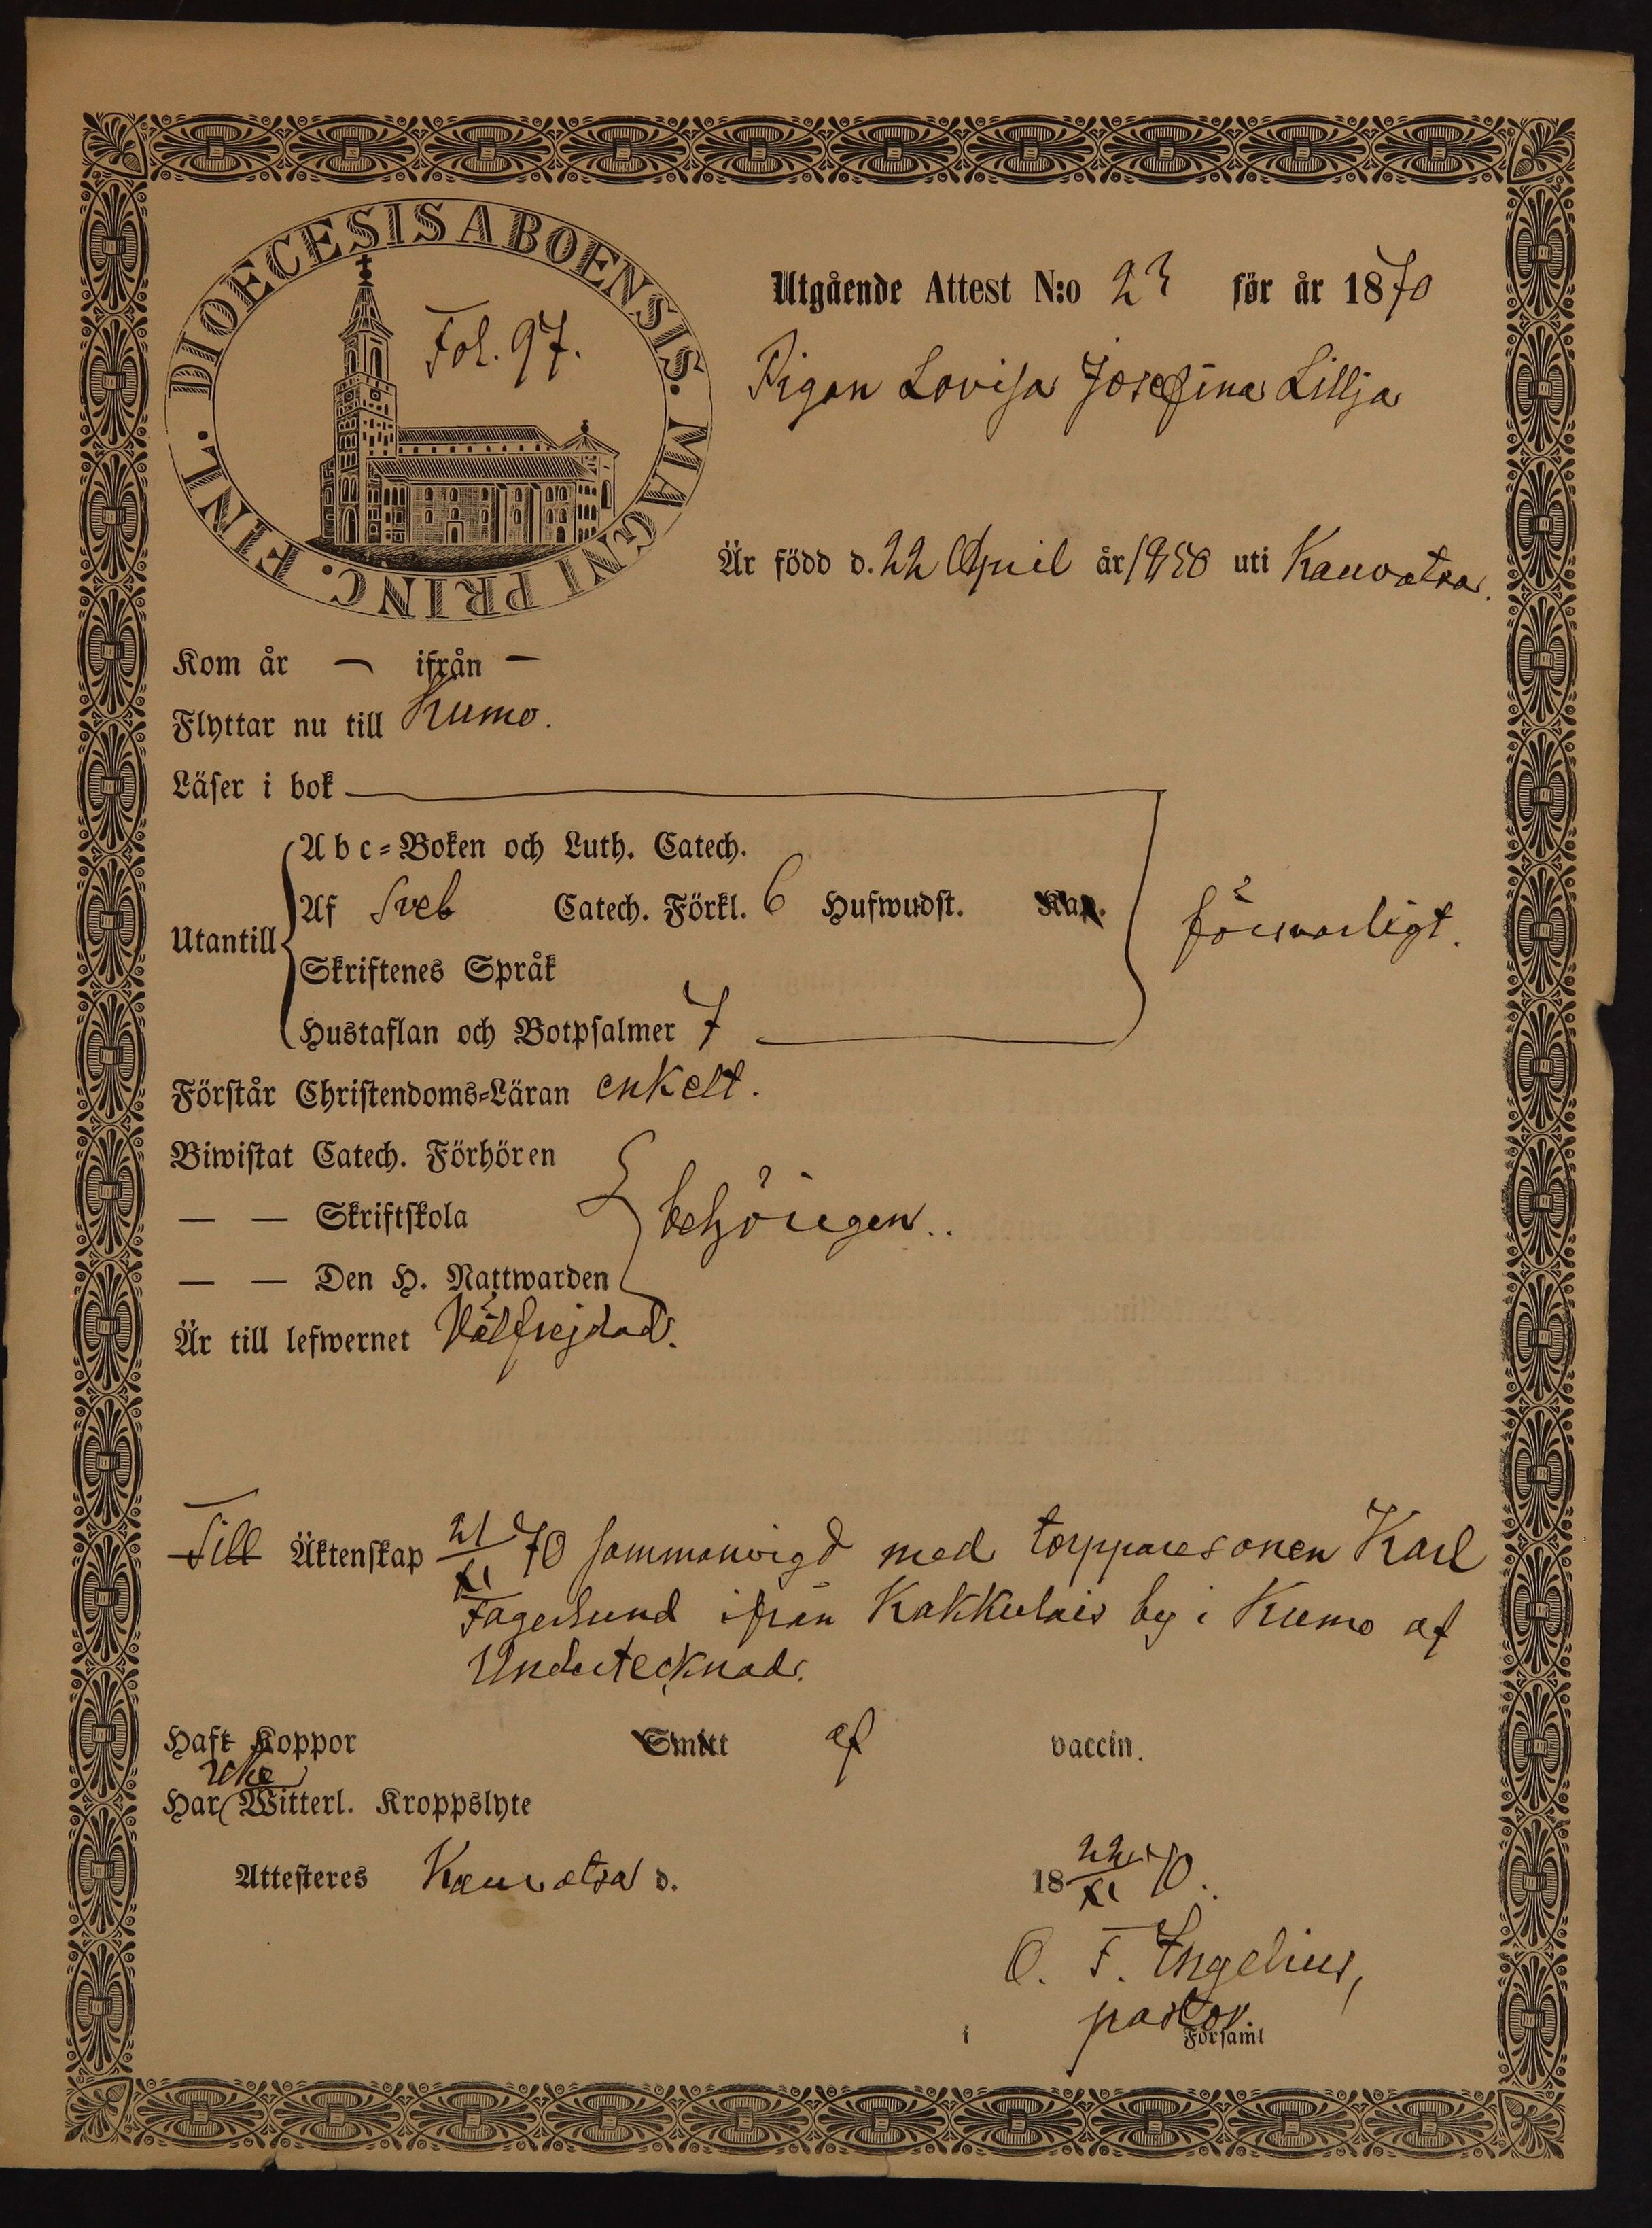 DIOECESIS ABOENSIS. MAGNI PRINC. FINL.
Fol. 97.
Utgående Attest N:o 23 för år 1870
Pigan Lovisa Josefina Lillja
Är född d. 22 April år 1850 uti Kauvatsa.
Kom år – ifrån –
Flyttar nu till Kumo.
Läser i bok
Utantill
Abc-Boken och Luth. Catech.
Af Sveb Catech. Förkl. 6 Hufwudst. Kap.
Skriftenes Språk
Hustaflan och Botpsalmer 7
försvarligt.
Förstår Christendoms-Läran enkelt.
Biwistat Catech. Förhören
— — Skriftskola
— — Den H. Nattwarden
behörigen..
Är till lefwernet Välfrejdad.
Till Äktenskap 21/XI 70 sammanvigd med torpparesonen Karl
Fagerlund ifrån Kakkulais by i Kumo af
Undertecknad.
Haft Koppor Smitt af vaccin.
icke
Har Witterl. Kroppslyte
Attesteres Kauvatsa d. 18 22/XI 70.
O. F. Engelius,
pastor
i Församl